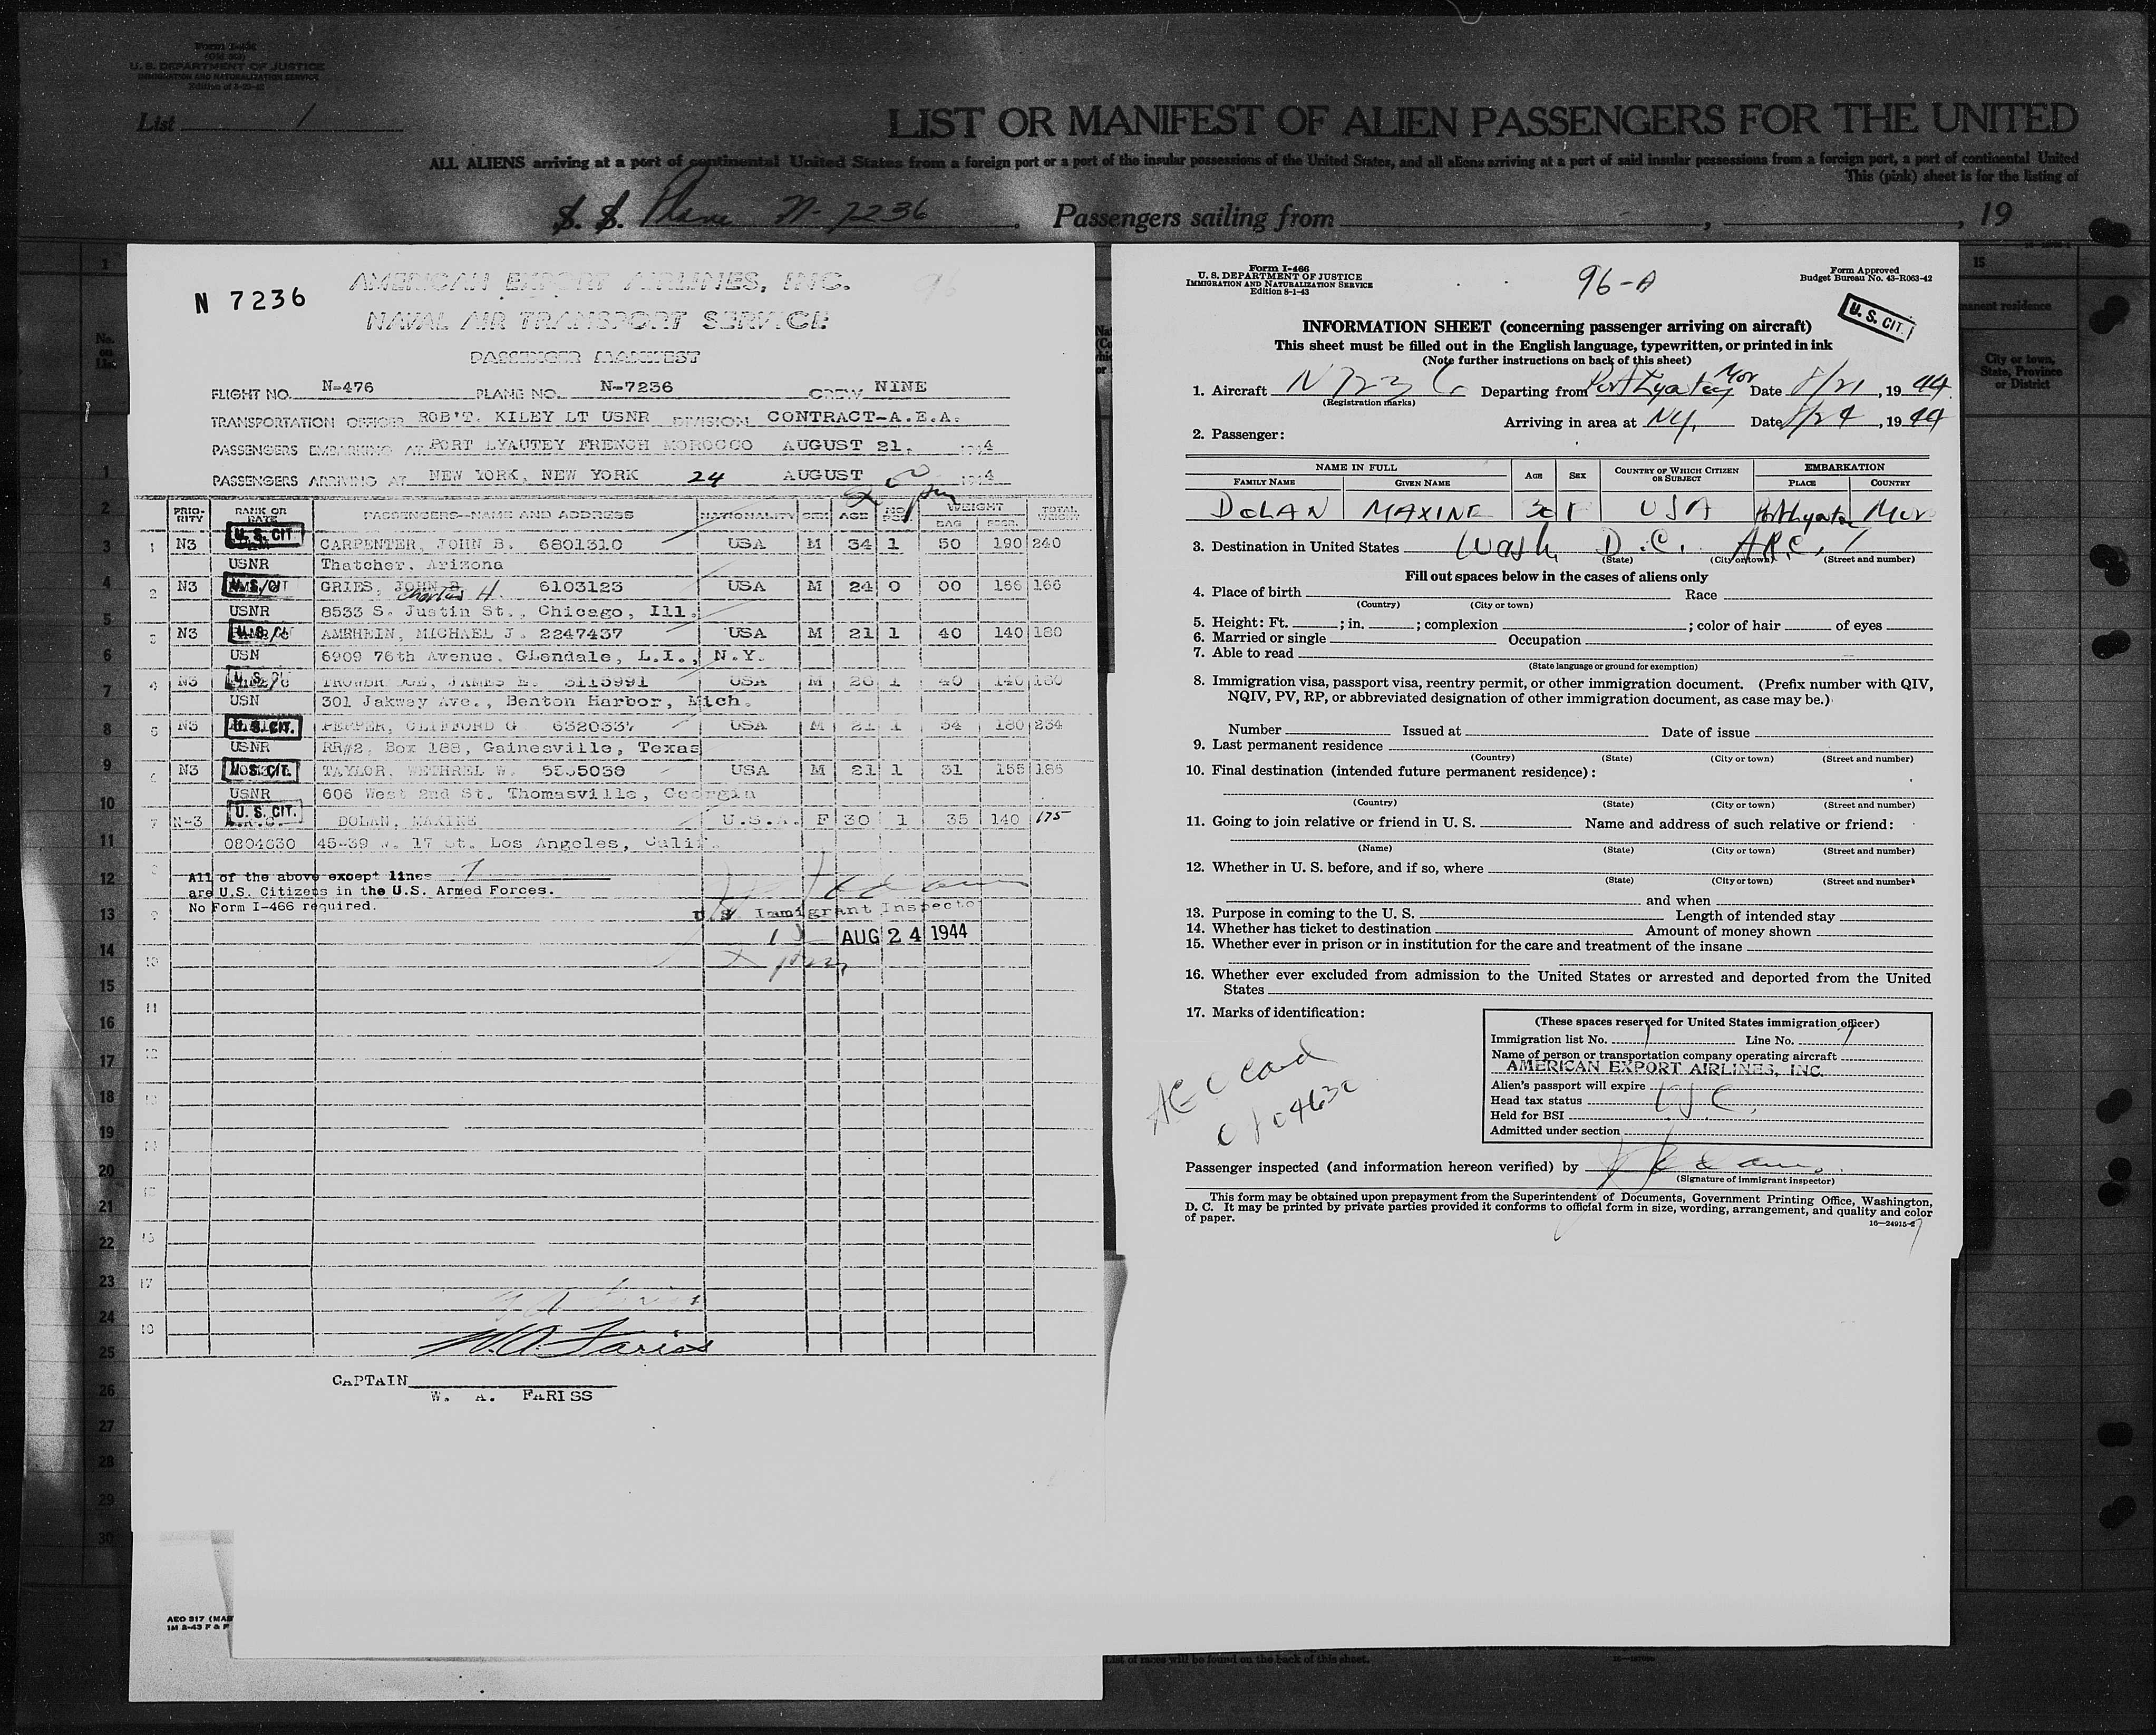 Form I-456
U. S. DEPARTMENT OF JUSTICE
IMMIGRATION AND NATURALIZATION SERVICE
List 1
LIST OR MANIFEST OF ALIEN PASSENGERS FOR THE UNITED
ALL ALIENS arriving at a port of continental United States from a foreign port or a port of the insular possessions of the United States, and all aliens arriving at a port of said insular possessions from a foreign port, a port of continental United
This (pink) sheet is for the listing of
S. S. Plane N-7236 Passengers sailing from , , 19
AMERICAN EXPORT AIRLINES, INC.
N 7236
NAVAL AIR TRANSPORT SERVICE
PASSENGER MANIFEST
FLIGHT NO. N-476 PLANE NO. N-7236 CREW NINE
TRANSPORTATION OFFICER ROB'T. KILEY LT USNR DIVISION CONTRACT-A.E.A.
PASSENGERS EMBARKING AT PORT LYAUTEY FRENCH MOROCCO AUGUST 21, 194
PASSENGERS ARRIVING AT NEW YORK, NEW YORK 24 AUGUST 194
PRIORITY RANK OR RATE PASSENGERS-NAME AND ADDRESS NATIONALITY SEX AGE NO. PCS. WEIGHT BAG PSGR. TOTAL WEIGHT
1 N3 U. S. CIT. CARPENTER, JOHN B. 6801310 USA M 34 1 50 190 240
USNR Thatcher, Arizona
2 N3 U. S. CIT GRIES, JOHN B. Charles H. 6103123 USA M 24 0 00 166 166
USNR 8533 S. Justin St., Chicago, Ill.
3 N3 U. S. AMRHEIN, MICHAEL J. 2247437 USA M 21 1 40 140 180
USN 6909 76th Avenue, Glendale, L.I., N.Y.
4 N3 U. S. JAMES E. 3115991 USA M 26 1 40 140 180
USN 301 Jakway Ave., Benton Harbor, Mich.
5 N3 U. S. CIT. PEPPER, CLIFFORD G 6320337 USA M 21 1 54 180 234
USNR RR#2, Box 188, Gainesville, Texas
6 N3 U. S. CIT. TAYLOR, WETHREL W. USA M 21 1 31 155 186
USNR 606 West 2nd St. Thomasville, Georgia
7 N-3 U. S. CIT. DOLAN, MAXINE U.S.A. F 30 1 35 140 175
0804630 45-39 W. 17 St. Los Angeles, Calif.
All of the above except lines 7
are U.S. Citizens in the U.S. Armed Forces.
No Form I-466 required.
U. S. Immigrant Inspector
AUG 24 1944
W. A. Fariss
CAPTAIN
W. A. FARISS
AEO 317
1M 2-43 F & F
Form I-466
U. S. DEPARTMENT OF JUSTICE
IMMIGRATION AND NATURALIZATION SERVICE
Edition 8-1-43
96-A
Form Approved
Budget Bureau No. 43-R063-42
U. S. CIT.
INFORMATION SHEET (concerning passenger arriving on aircraft)
This sheet must be filled out in the English language, typewritten, or printed in ink
(Note further instructions on back of this sheet)
1. Aircraft N 7236 Departing from Port Lyautey Mor Date 8/21, 1944
(Registration marks)
Arriving in area at NY. Date 8/24, 1944
2. Passenger:
NAME IN FULL AGE SEX COUNTRY OF WHICH CITIZEN OR SUBJECT EMBARKATION
FAMILY NAME GIVEN NAME PLACE COUNTRY
DOLAN MAXINE 30 F USA Port Lyautey Mor
3. Destination in United States Wash. D.C. A.R.C.
(State) (City or town) (Street and number)
Fill out spaces below in the cases of aliens only
4. Place of birth Race
(Country) (City or town)
5. Height: Ft. ; in. ; complexion ; color of hair of eyes
6. Married or single Occupation
7. Able to read
(State language or ground for exemption)
8. Immigration visa, passport visa, reentry permit, or other immigration document. (Prefix number with QIV,
NQIV, PV, RP, or abbreviated designation of other immigration document, as case may be.)
Number Issued at Date of issue
9. Last permanent residence
(Country) (State) (City or town) (Street and number)
10. Final destination (intended future permanent residence):
(Country) (State) (City or town) (Street and number)
11. Going to join relative or friend in U. S. Name and address of such relative or friend:
(Name) (State) (City or town) (Street and number)
12. Whether in U. S. before, and if so, where
(State) (City or town) (Street and number)
and when
13. Purpose in coming to the U. S. Length of intended stay
14. Whether has ticket to destination Amount of money shown
15. Whether ever in prison or in institution for the care and treatment of the insane
16. Whether ever excluded from admission to the United States or arrested and deported from the United
States
17. Marks of identification:
(These spaces reserved for United States immigration officer)
Immigration list No. 1 Line No. 7
Name of person or transportation company operating aircraft
AMERICAN EXPORT AIRLINES, INC.
Alien's passport will expire
Head tax status USC.
Held for BSI
Admitted under section
Passenger inspected (and information hereon verified) by
(Signature of immigrant inspector)
This form may be obtained upon prepayment from the Superintendent of Documents, Government Printing Office, Washington,
D. C. It may be printed by private parties provided it conforms to official form in size, wording, arrangement, and quality and color
of paper.
16—24915-2
List of races will be found on the back of this sheet.